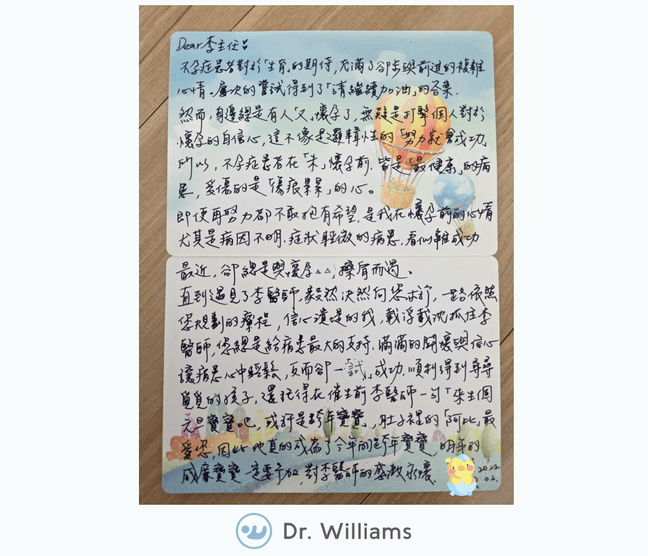 Dear 李主任:
不孕症患者對於「生育」的期待,充滿了卻步與前進的複雜
心情。屢次的嘗試得到了「請繼續加油」的答案.
然而,身邊總是有人「又」懷孕了,無疑是打擊個人對於
懷孕的自信心,這不像是邏輯性的「努力就會成功
所以,不孕症患者在「未」懷孕前.皆是「最健康」的病
患,受傷的是「傷痕累累」的心。
即使再努力都不敢抱有希望.是我在懷孕前的心情
尤其是病因不明.症狀輕微的病患.看似離成功
最近,卻總是與懷孕△△擦肩而過。
直到遇見了李醫師.毅然決然向您求診,一路依照
您規劃的療程,信心潰堤的我,載浮載沈抓住李
醫師,您總是給病患最大的支持.滿滿的關懷與信心
讓病患心中輕鬆,反而卻一試」成功.順利得到尋尋
覓覓的孩子,還記得在催生前李醫師一句「來生個
元旦寶寶吧,或許是跨年寶寶,肚子裡的「阿比」最
愛您,因此他真的成為了今年的跨年寶寶,明年的
感寶寶一定要參加,對李醫師的感激永懷.
2022
02.
Dr. Williams